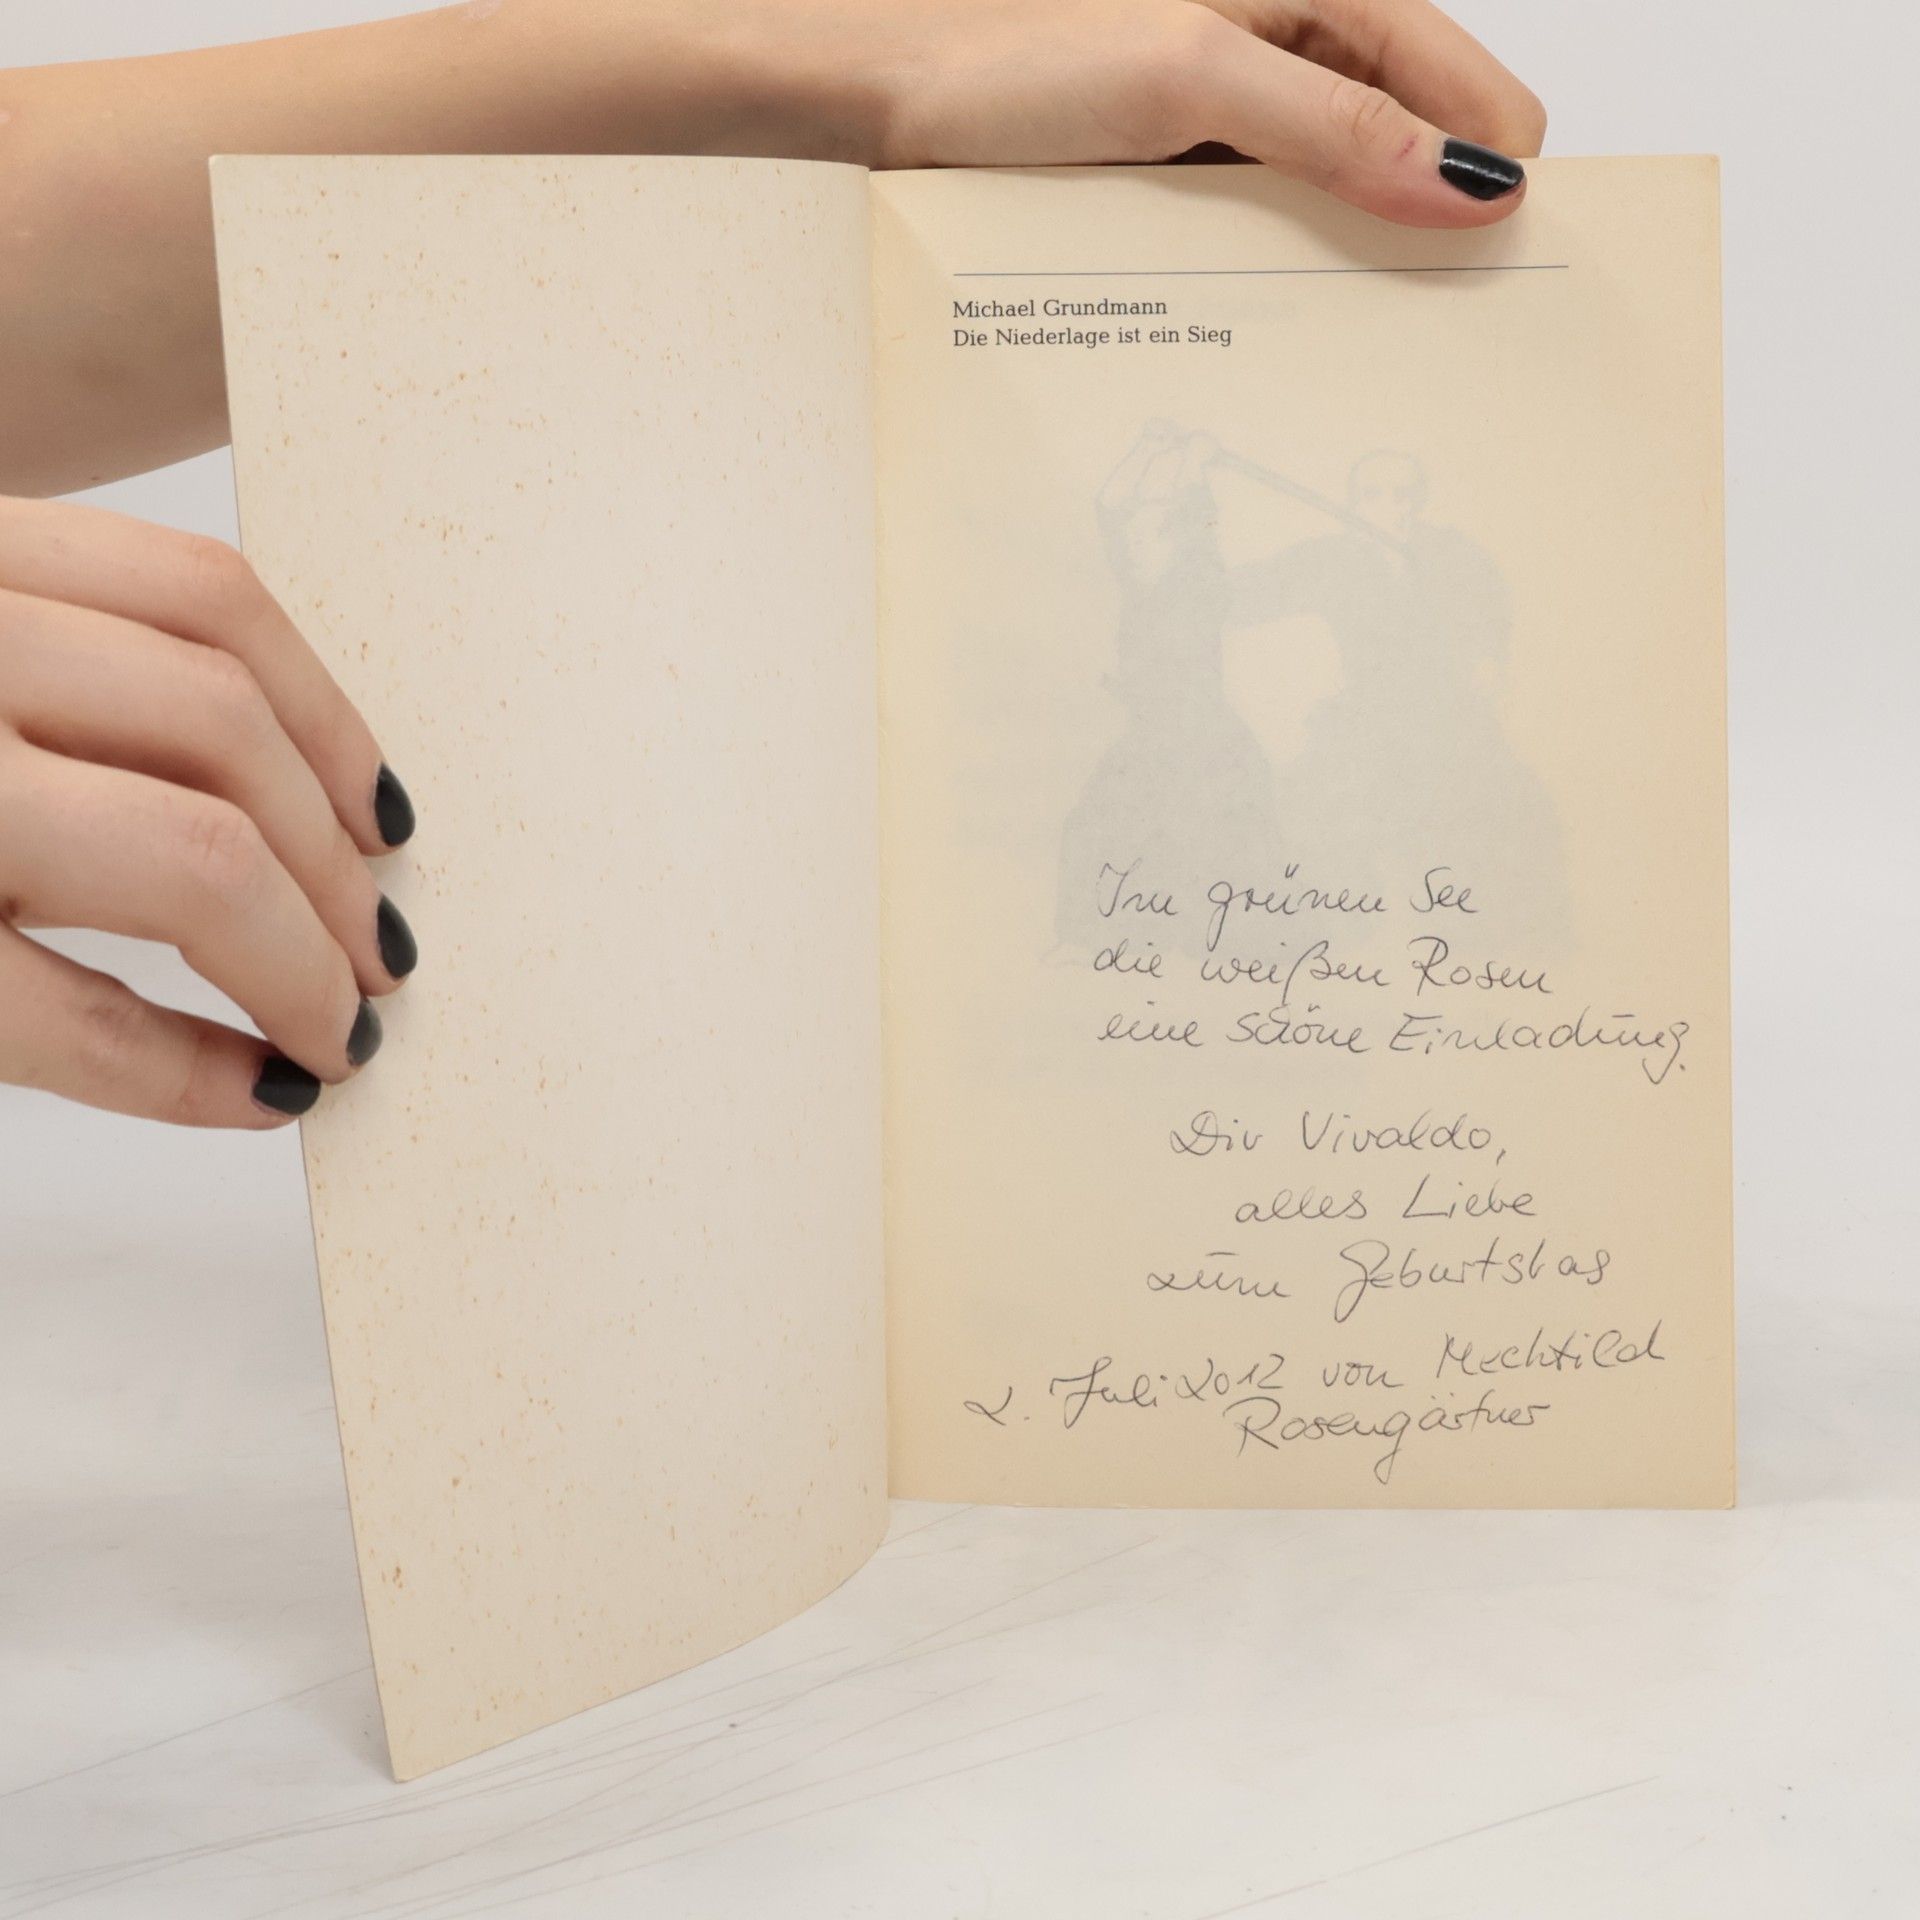 Michael Grundmann
Die Niederlage ist ein Sieg
Im grünen See
die weißen Rosen
eine schöne Einladung.
Dir Vivaldo,
alles Liebe
zum Geburtstag
2. Juli 2012 von Mechtild
Rosengärtner